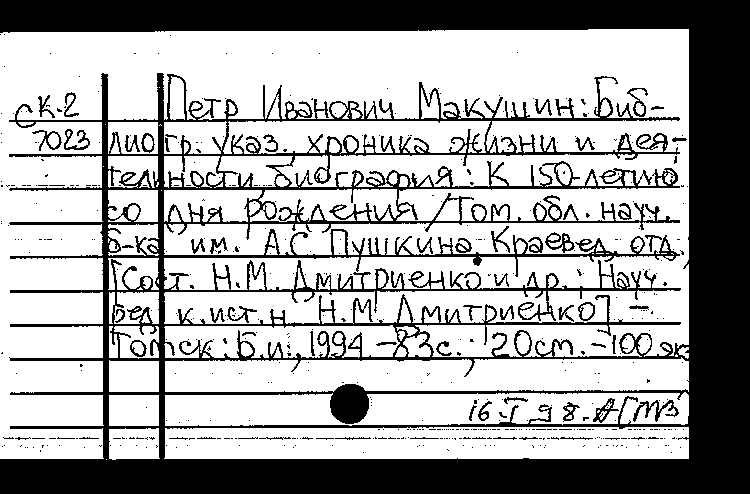 СК-2
7023
Петр Иванович Макушин: Биб-
лиогр. указ., хроника жизни и дея-
тельности, биография: К 150-летию
со дня рождения / Том. обл. науч.
б-ка им. А.С. Пушкина. Краевед. отд.;
[Сост. Н.М. Дмитриенко и др.; Науч.
ред. к.ист.н. Н.М. Дмитриенко]. –
Томск: Б.и., 1994. – 83с.; 20см. – 100 экз
16.I.98.